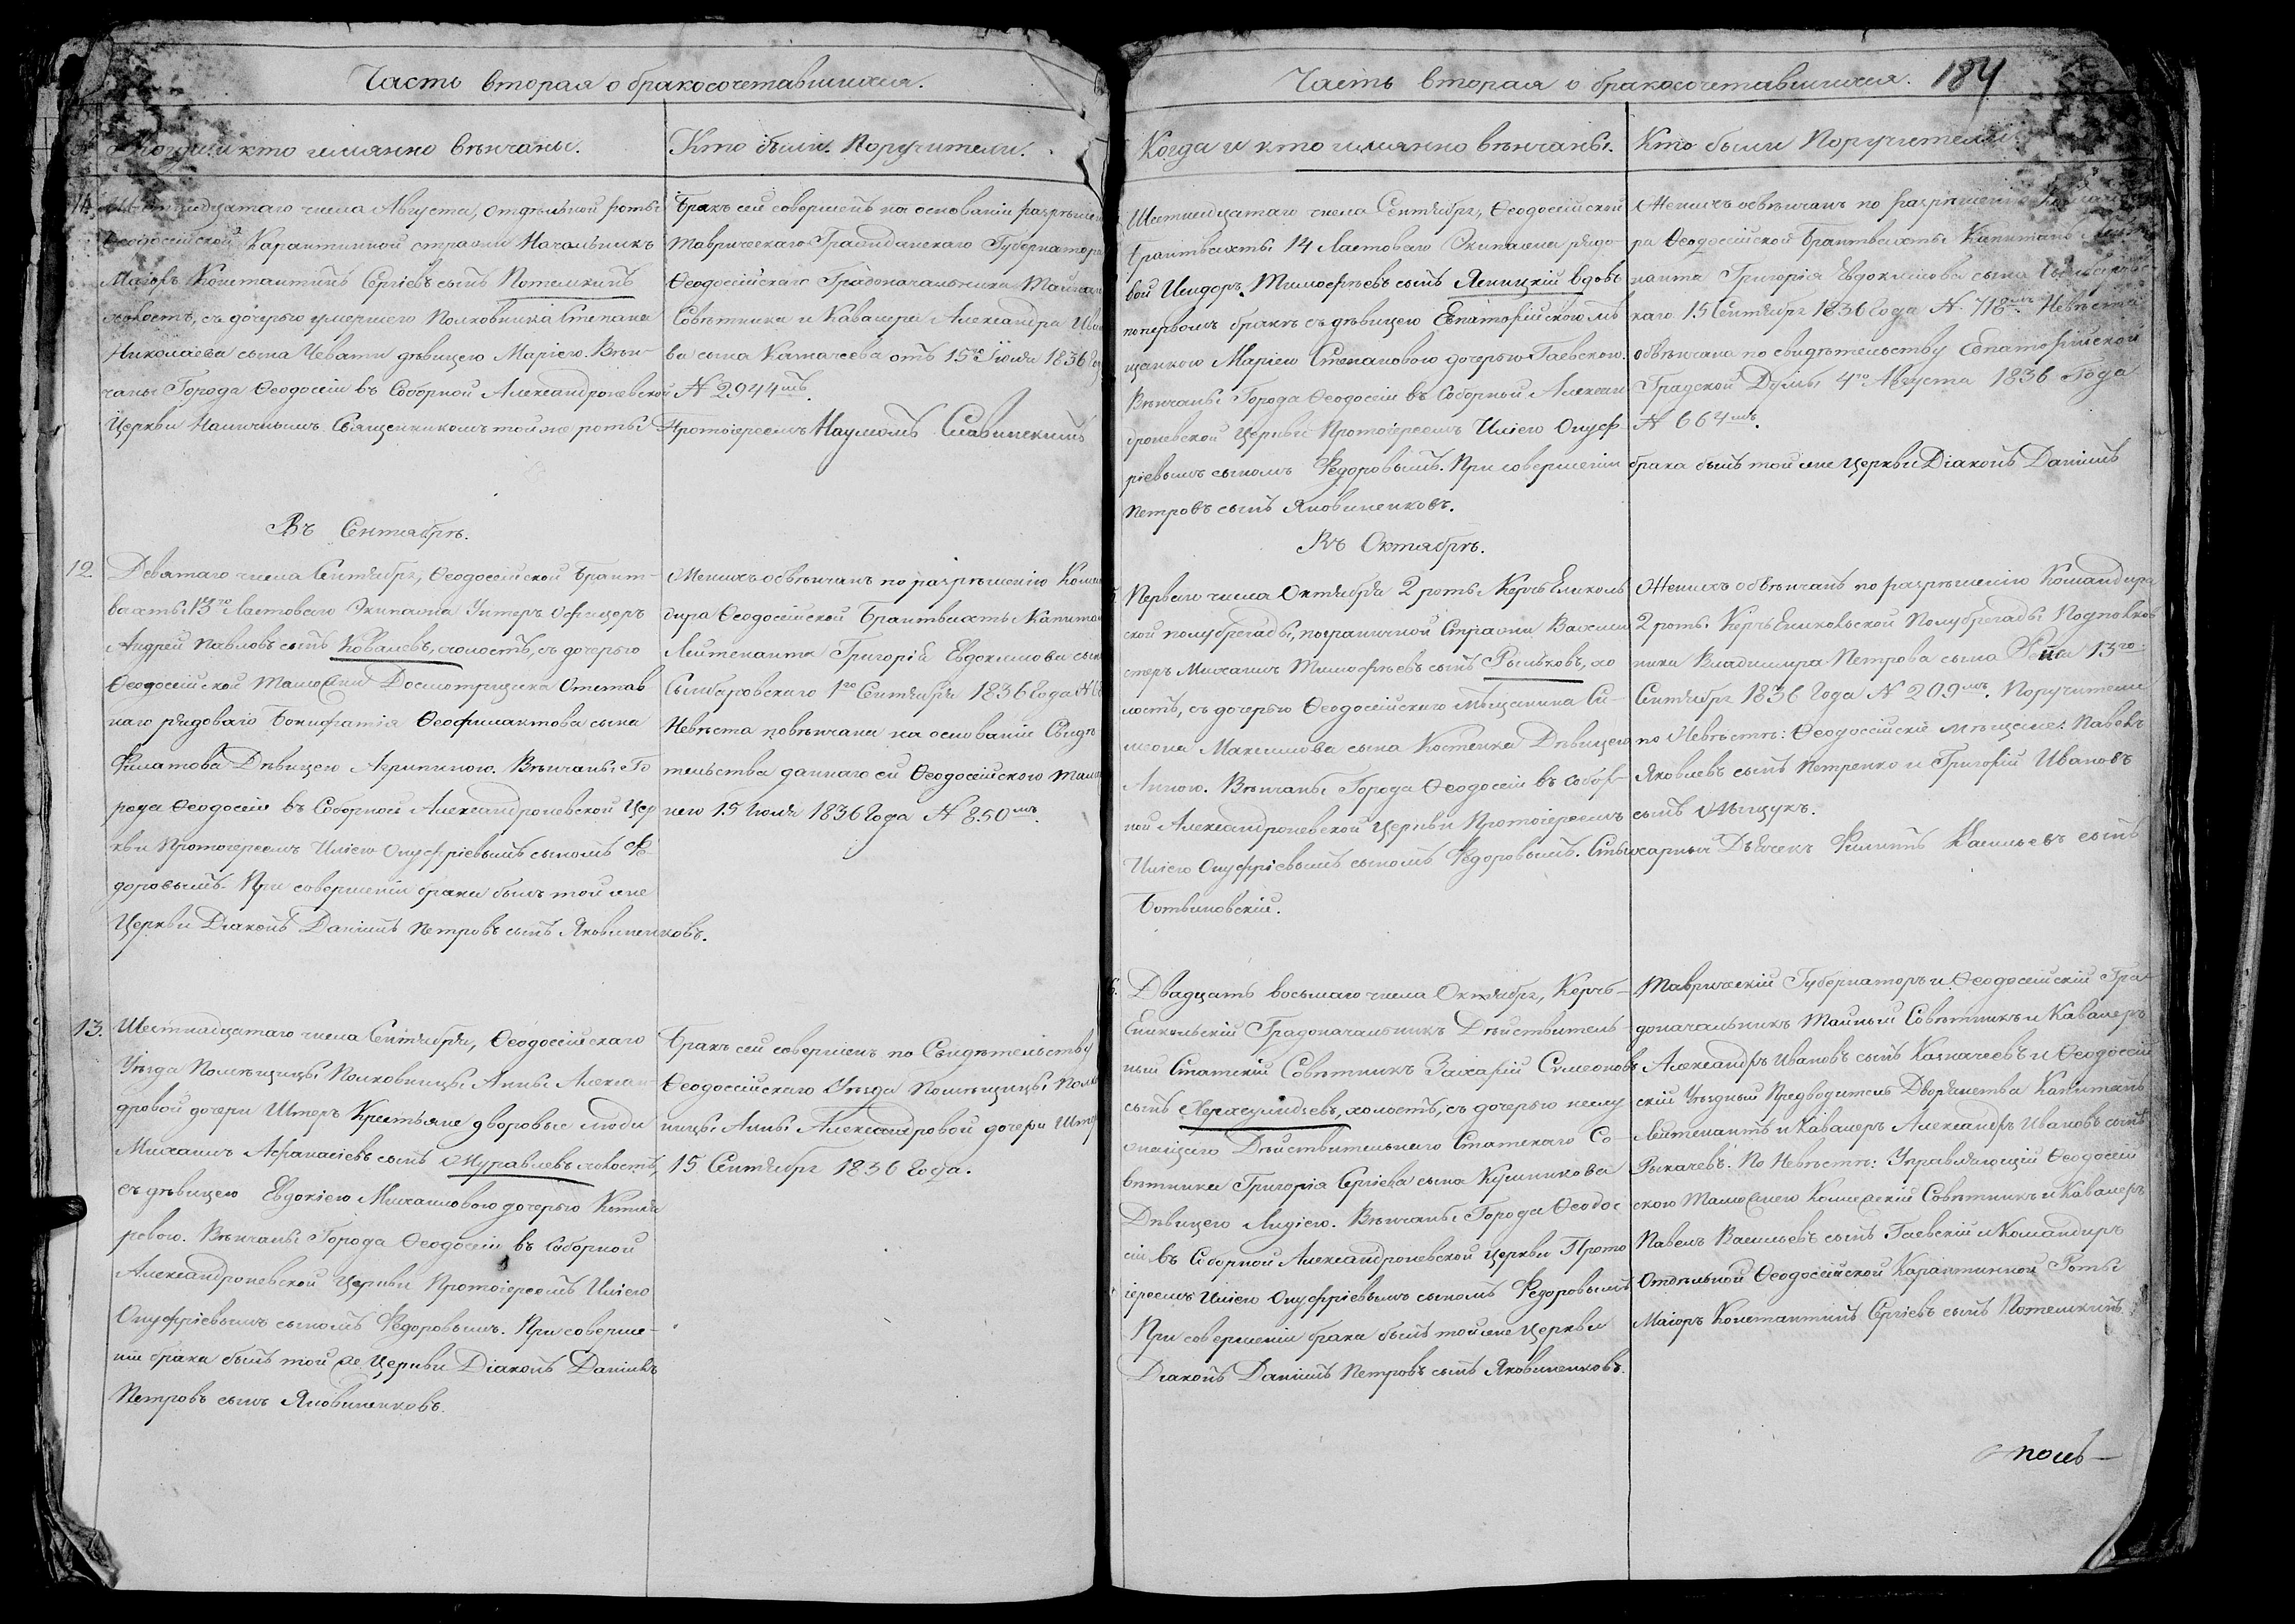 Часть вторая о бракосочетавшихся.
Когда и кто имянно вѣнчаны.
Кто были Поручители.
11.
числа Августа, отдѣльной роты
Ѳеодосійской Карантинной стражи Начальникъ
Маіоръ Константинъ Сергіевъ сынъ Потемкинъ
холостъ, съ дочерью умершего Полковника Степана
Николаева сына Чевати дѣвицею Маріею. Вѣн-
чаны Города Ѳеодосіи въ Соборной Александроневской
Церкви Наличнымъ Священникомъ той же роты
Протоіереемъ Наумомъ Славинскимъ
Бракъ сей совершенъ на основаніи разрѣшен
Таврическаго Гражданскаго Губернатора
Ѳеодосійскаго Градоначальника Тайнаго
Совѣтника и Кавалера Александра Ива
ва сына Казначеева отъ 15го Іюля 1836 Го
№ 2944мъ.
Въ Сентябрѣ.
12
Девятаго числа Сентября, Ѳеодосійской Брант-
вахты 13го Ластоваго Экипажа Унтеръ Офицеръ
Андрей Павловъ сынъ Ковалевъ, холостъ, съ дочерью
Ѳеодосійской Таможни Досмотрщика Отстав
наго рядоваго Бонифатія Ѳеофилактова сына
Филатова Дѣвицею Агрипиною. Вѣнчаны Го
рода Ѳеодосіи въ Соборной Александроневской Цер
кви Протоіереемъ Иліею Онуфріевымъ сыномъ Ѳе-
доровымъ. При совершеніи брака былъ той же
Церкви Діаконъ Даніилъ Петровъ сынъ Яновиченковъ.
Женихъ обвѣнчанъ по разрѣшенію Коман
дира Ѳеодосійской Брантвахты Капитан
Лейтенанта Григорія Евдокимова сына
Сымбаровскаго 1го Сентября 1836 Года №
Невѣста повѣнчана на основаніи Свидѣ
тельства даннаго ей Ѳеодосійскою Тамож
нею 15 Іюля 1836 Года № 850мъ.
13.
Шестнадцатаго числа Сентября, Ѳеодосійскаго
Уѣзда Помѣщицы Полковницы Анны Алексан-
дровой дочери Штеръ Крестьяне дворовые люди
Михаилъ Афанасіевъ сынъ Муравлевъ холостъ,
съ дѣвицею Евдокіею Михаиловою дочерью
ревою. Вѣнчаны Города Ѳеодосіи въ Соборной
Александроневской Церкви Протоіереемъ Иліею
Онуфріевымъ сыномъ Ѳедоровымъ. При соверше-
ніи брака былъ той же Церкви Діаконъ Даніилъ
Петровъ сынъ Яновиченковъ.
Бракъ сей совершенъ по Свидѣтельству
Ѳеодосійскаго Уѣзда Помѣщицы Полков
ницы Анны Александровой дочери Штер
15 Сентября 1836 Года.
Часть вторая о бракосочетавшихся.
184
Когда и кто имянно вѣнчаны.
Кто были Поручители.
Шестнадцатаго числа Сентября, Ѳеодосійской
Брантвахты 14 Ластоваго Экипажа рядо-
вой Исидоръ Тимофѣевъ сынъ Яницкій вдовъ
по первомъ бракѣ съ дѣвицею Евпаторійскою мѣ
щанкою Маріею Степановою дочерью Гаевскою.
Вѣнчаны Города Ѳеодосіи въ Соборной Алексан
дроневской Церкви Протоіереемъ Иліею Онуф-
ріевымъ сыномъ Ѳедоровымъ. При совершеніи брака былъ той же Церкви Діаконъ Даніилъ
Петровъ сынъ Яновиченковъ.
Женихъ обвѣнчанъ по разрѣшенію Команди
ра Ѳеодосійской Брантвахты Капитанъ Лейте
нанта Григорія Евдокимова сына Сымбаровс
каго 15 Сентября 1836 Года № 718мъ. Невѣста
обвѣнчана по свидѣтельству Евпаторійской
Градской Думы 4го Августа 1836 Года
№ 664мъ.
Въ Октябрѣ.
Перваго числа Октября 2 роты Керчь Ениколь
ской полубрегады, пограничной Стражи Вахми
стръ Михаилъ Тимофѣевъ сынъ Рыльковъ, хо
лостъ, съ дочерью Ѳеодосійскаго Мѣщанина Си-
меона Максимова сына Костенка Дѣвицею
Анною. Вѣнчаны Города Ѳеодосіи въ Собор-
ной Александроневской Церкви Протоіереемъ
Иліею Онуфріевымъ сыномъ Ѳедоровымъ. Стихарный Дьячекъ Филипъ Васильевъ сынъ
Ботвиновскій.
Женихъ обвѣнчанъ по разрѣшенію Командира
2 роты Керчь Еникольской Полубрегады Подполков
ника Владимира Петрова сына 13го
Сентября 1836 Года № 209мъ. Поручители
по Невѣстѣ: Ѳеодосійскіе мѣщане: Павелъ
Яковлевъ сынъ Петренко и Григорій Ивановъ
сынъ Мищукъ.
Двадцать восьмаго числа Октября, Керчь-
Еникольскій Градоначальникъ Дѣйствитель-
ный Статскій Совѣтникъ Захарій Симеоновъ
сынъ Херхеулидзевъ, холостъ, съ дочерью нему
жащаго Дѣйствительнаго Статскаго Со-
вѣтника Григорія Сергіева сына Кушникова
Дѣвицею Лидіею. Вѣнчаны Города Ѳеодо-
сіи въ Соборной Александроневской Церкви Прото
іереемъ Иліею Онуфріевымъ сыномъ Ѳедоровымъ
При совершеніи брака былъ той же Церкви
Діаконъ Даніилъ Петровъ сынъ Яновиченковъ.
Таврическій Губернаторъ и Ѳеодосійскій Гра-
доначальникъ Тайный Совѣтникъ и Кавалеръ
Александръ Ивановъ сынъ Казначеевъ и Ѳеодосій
скій Уѣздный Предводитель Дворянства Капитанъ
Лейтенантъ и Кавалеръ Александръ Ивановъ сынъ
Рыкачевъ. По Невѣстѣ: Управляющій Ѳеодосій
скою Таможнею Коллежскій Совѣтникъ и Кавалеръ
Павелъ Васильевъ сынъ Гаевскій и Командиръ
Отдѣльной Ѳеодосійской Карантинной Роты
Маіоръ Константинъ Сергіевъ сынъ Потемкинъ.